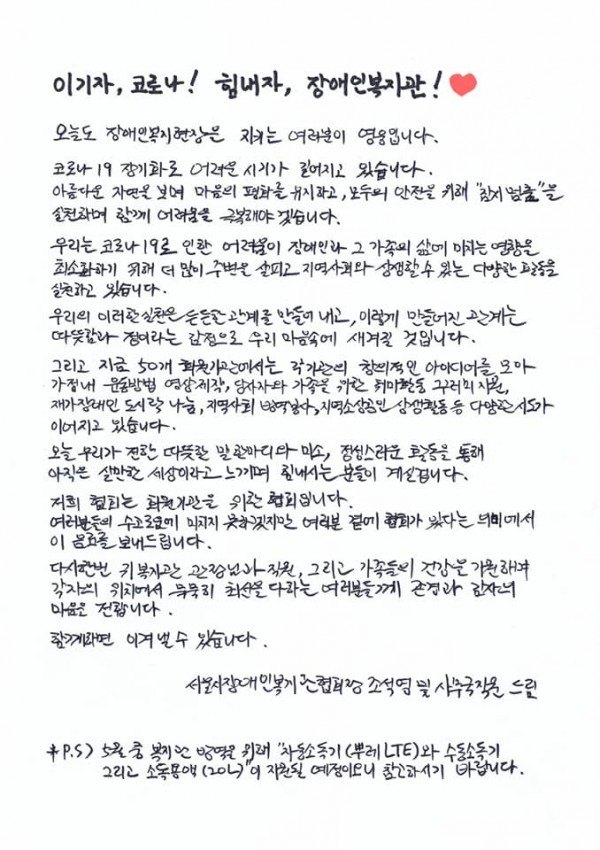 이기자, 코로나! 힘내자, 장애인복지관! ❤
오늘도 장애인복지현장을 지키는 여러분이 영웅입니다.
코로나 19 장기화로 어려운 시기가 길어지고 있습니다.
아름다운 자연을 보며 마음의 평화를 유지하고, 모두의 안전을 위해 "잠시 멈춤"을
실천하며 함께 어려움을 극복해야겠습니다.
우리는 코로나19로 인한 어려움이 장애인과 그 가족의 삶에 미치는 영향을
최소화하기 위해 더 많이 주변을 살피고 지역사회와 상생할 수 있는 다양한 활동을
실천하고 있습니다.
우리의 이러한 실천은 든든한 관계를 만들어 내고, 이렇게 만들어진 관계는
따뜻함과 정이라는 감정으로 우리 마음속에 새겨질 것입니다.
그리고 지금 50개 회원기관에서는 각 기관의 창의적인 아이디어를 모아
가정내 운동방법 영상제작, 당사자와 가족을 위한 취미활동 꾸러미 지원,
재가장애인 도시락 나눔, 지역사회 방역봉사, 지역소상공인 상생활동 등 다양한 시도가
이어지고 있습니다.
오늘 우리가 전한 따뜻한 말 한마디와 미소, 정성스러운 활동을 통해
아직은 살만한 세상이라고 느끼며 힘내시는 분들이 계실겁니다.
저희 협회는 회원기관을 위한 협회입니다.
여러분들의 수고로움에 미치지 못하겠지만 여러분 곁에 협회가 있다는 의미에서
이 음료를 보내드립니다.
다시한번 키복지관 관장님과 직원, 그리고 가족들의 건강을 기원하며
각자의 위치에서 묵묵히 최선을 다하는 여러분들께 존경과 감사의
마음을 전합니다.
함께라면 이겨낼 수 있습니다.
서울시장애인복지관협회장 조석영 및 사무국직원 드림
* P.S) 5월 중 복지관 방역을 위해 "자동소독기 (뿌레 LTE)와 수동소독기
그리고 소독용액 (20L)"이 지원될 예정이오니 참고하시기 바랍니다.